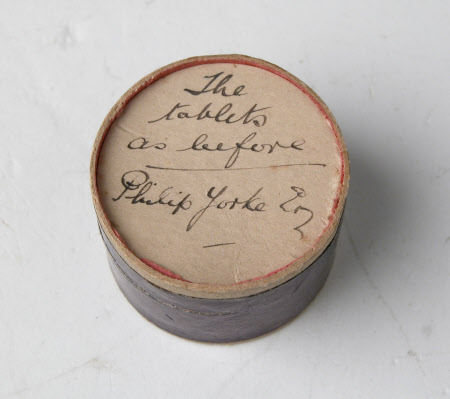 The
tablets
as before
Philip Yorke Esq